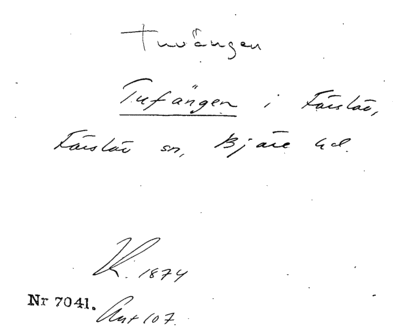 Tuvängen
Tufängen i Förslöv,
Förslöv sn, Bjäre hd.
K. 1874
Nr 7041. Ant 107.